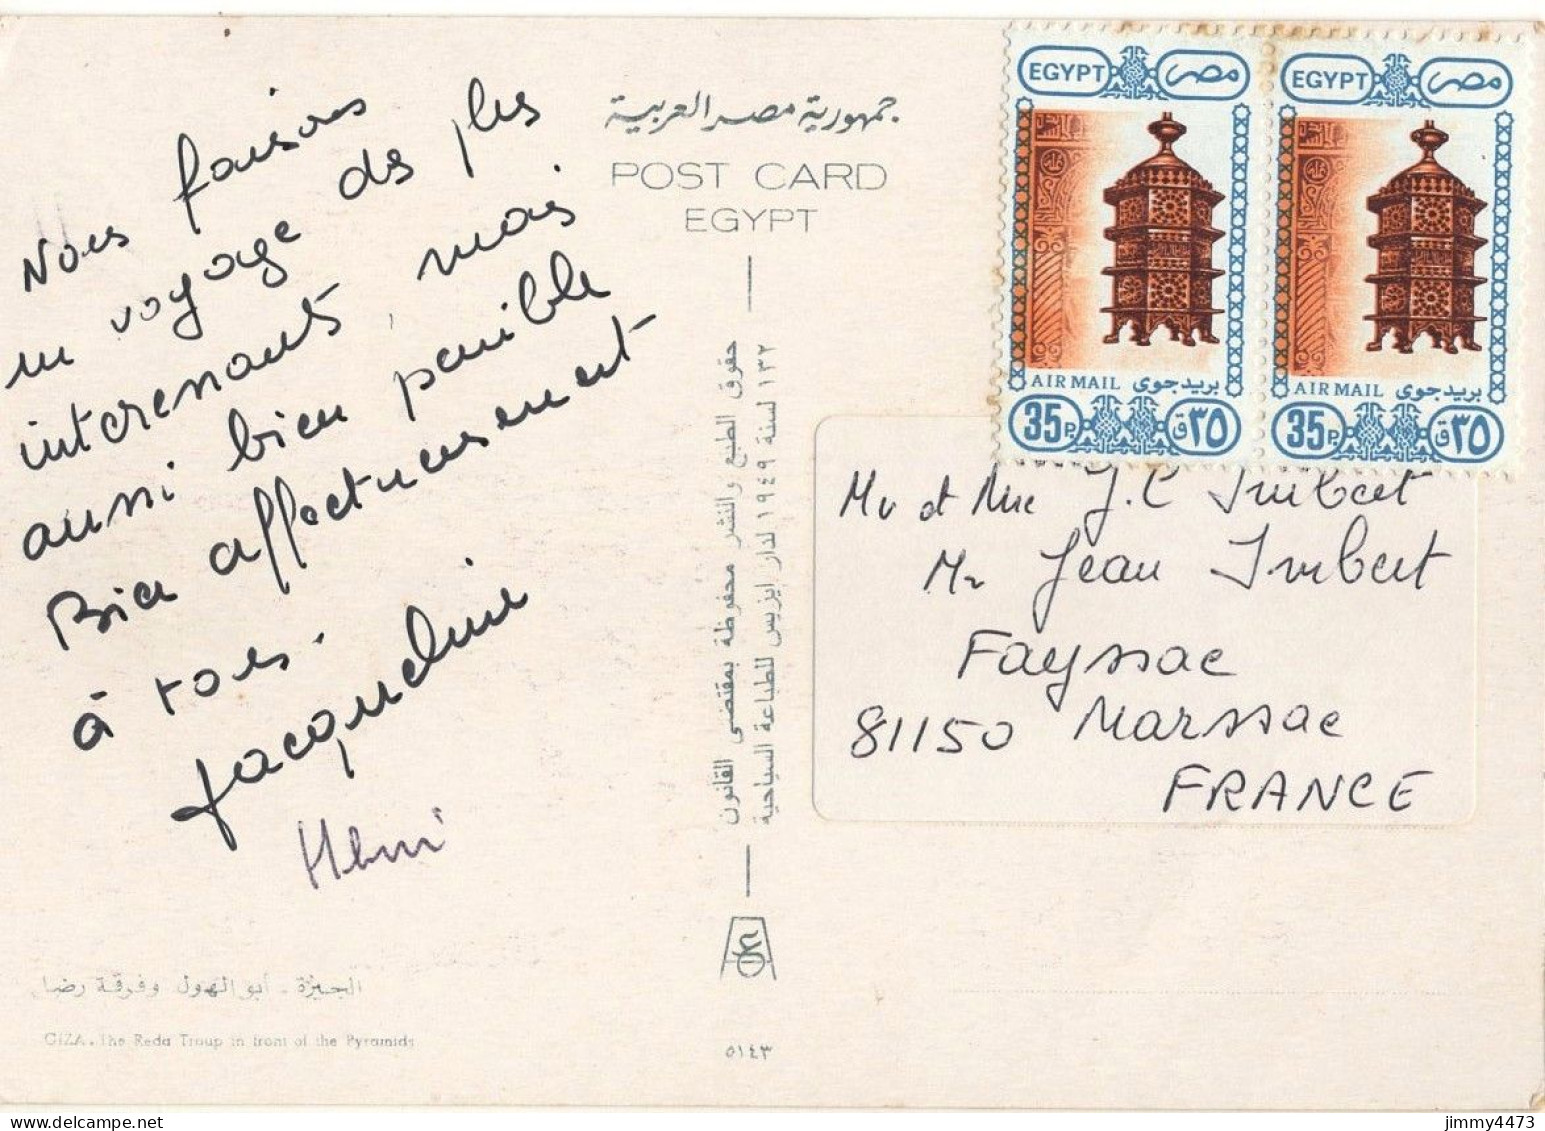 Nous faisons
un voyage des plus
interenants, mais
aussi bien penible
Bien affectueusement
à tous.
Jacqueline
Henri
الجيزة - أبو الهول وفرقة رضا
GIZA . The Reda Troup in front of the Pyramids
جمهورية مصر العربية
POST CARD
EGYPT
حقوق الطبع والنشر محفوظة بمقتضى القانون
١٣٢ لسنة ١٩٤٩ لدار ايزيس للطباعة السياحية
٥١٤٣
EGYPT مصر
AIR MAIL بريد جوى
35P. ٣٥ق
EGYPT مصر
AIR MAIL بريد جوى
35P. ٣٥ق
Mr et Mme J.C Imbert
Mr Jean Imbert
Fayssac
81150 Marssac
FRANCE
jimmy4473